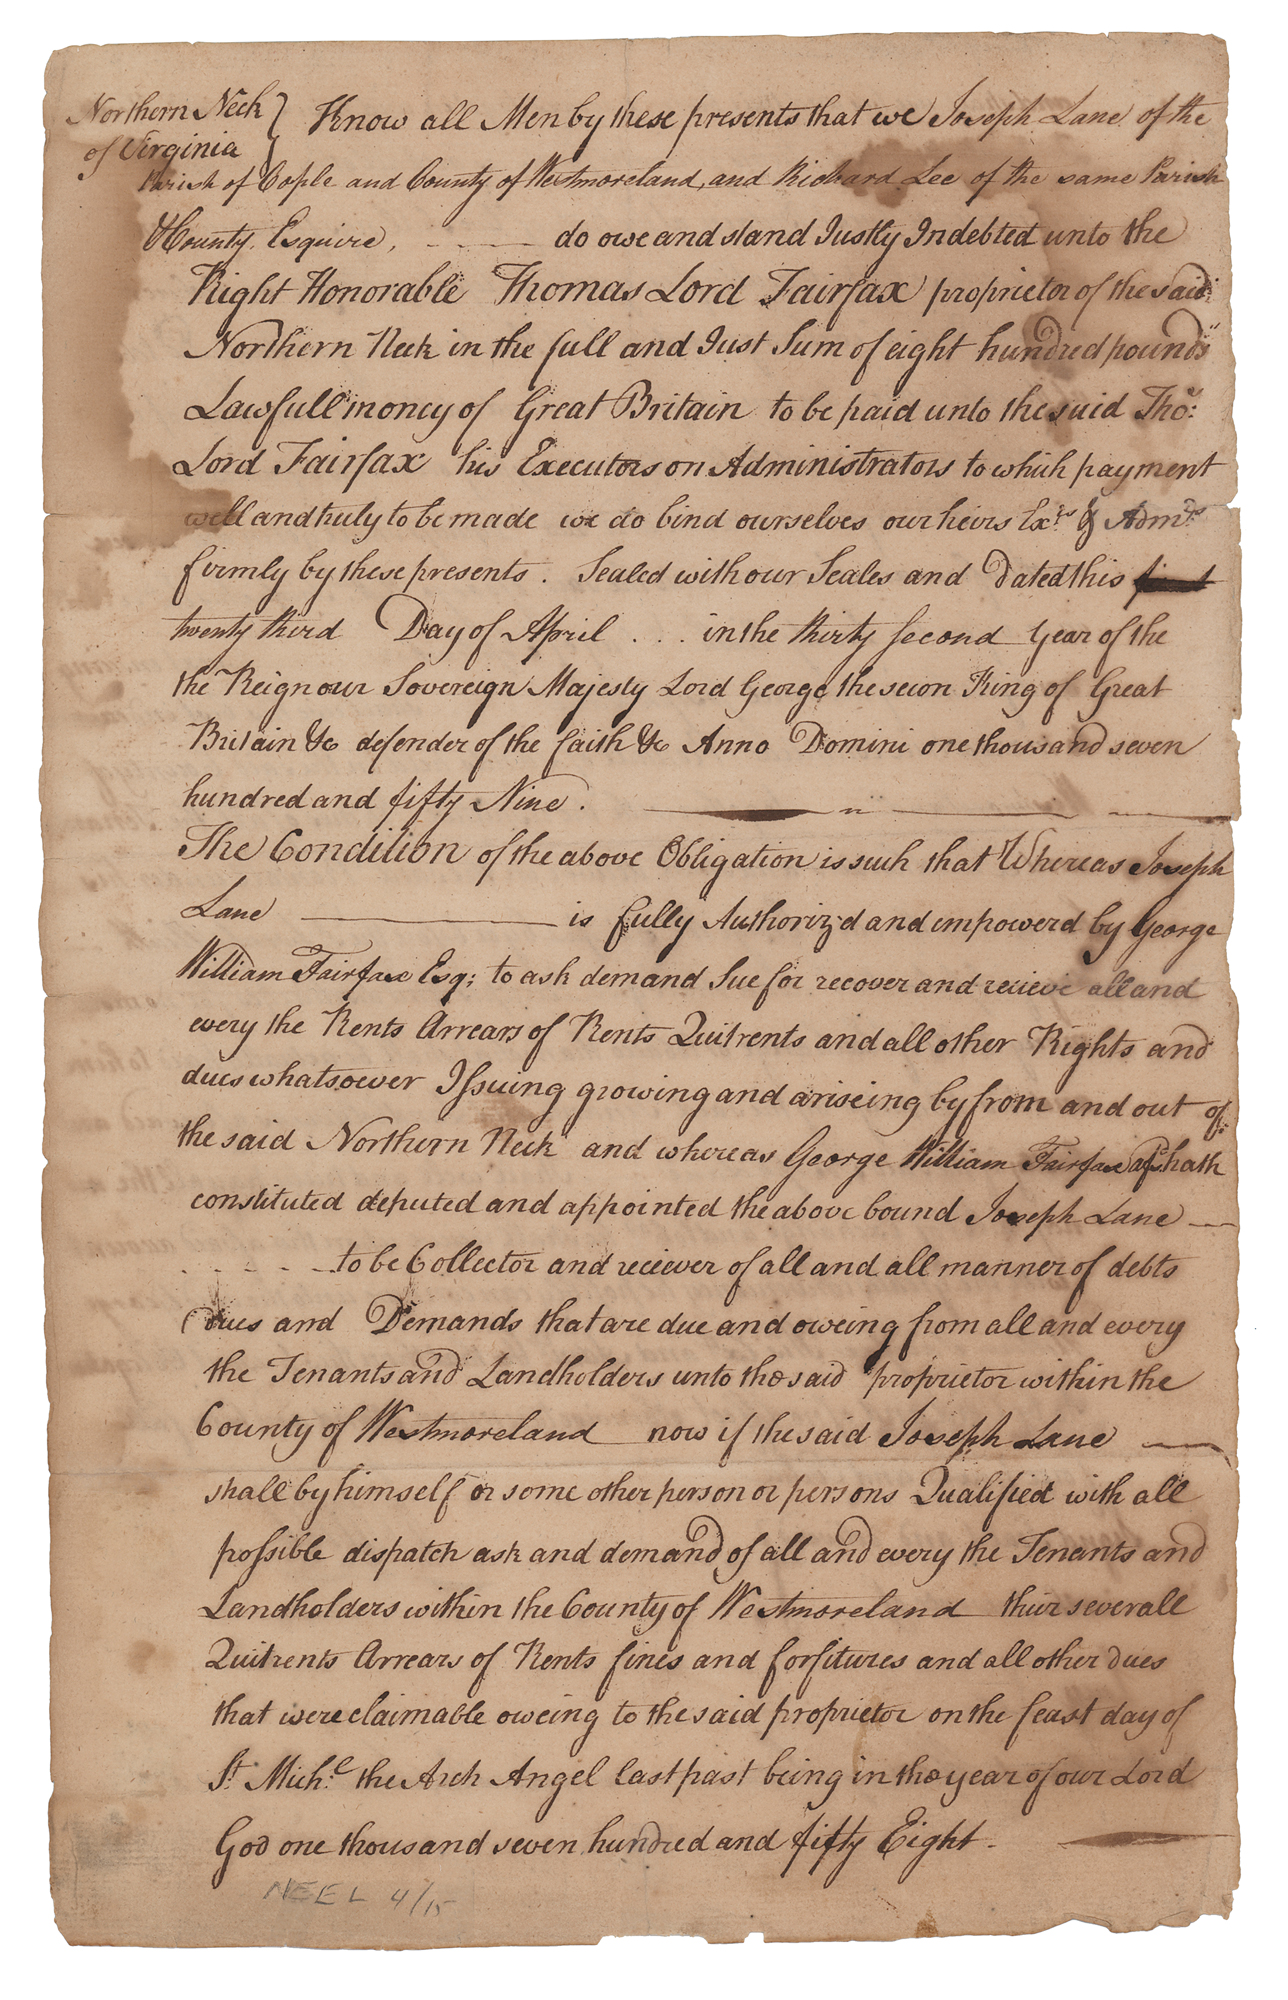 Northern Neck } Know all Men by these presents that we Joseph Lane of the
of Virginia }
Parish of Cople and County of Westmoreland, and Richard Lee of the same Parish
& County, Esquire, - - - do owe and stand Justly Indebted unto the
Right Honorable Thomas Lord Fairfax proprietor of the said
Northern Neck in the full and Just Sum of eight hundred pounds
Lawfull money of Great Britain to be paid unto the said Thos:
Lord Fairfax his Executors or Administrators to which payment
well and truly to be made we do bind ourselves our heirs Exrs & Admrs
firmly by these presents. Sealed with our Seales and dated this
twenty third Day of April ... in the thirty second Year of the
the Reign our Sovereign Majesty Lord George the secon King of Great
Britain &c defender of the faith &c Anno Domini one thousand seven
hundred and fifty Nine.
The Condition of the above Obligation is such that Whereas Joseph
Lane is fully Authoriz'd and empowerd by George
William Fairfax Esq; to ask demand Sue for recover and recieve all and
every the Rents Arrears of Rents Quitrents and all other Rights and
dues whatsoever Issuing growing and ariseing by from and out of
the said Northern Neck and whereas George William Fairfax afsd hath
constituted deputed and appointed the above bound Joseph Lane —
- - - - to be Collector and reciever of all and all manner of debts
dues and Demands that are due and oweing from all and every
the Tenants and Landholders unto the said proprietor within the
County of Westmoreland now if the said Joseph Lane —
shall by himself or some other person or persons Qualified with all
possible dispatch ask and demand of all and every the Tenants and
Landholders within the County of Westmoreland their severall
Quitrents Arrears of Rents fines and forfitures and all other dues
that were claimable oweing to the said proprietor on the feast day of
St. Mich:l the Arch Angel last past being in the year of our Lord
God one thousand seven hundred and fifty Eight.
NEEL 4/15